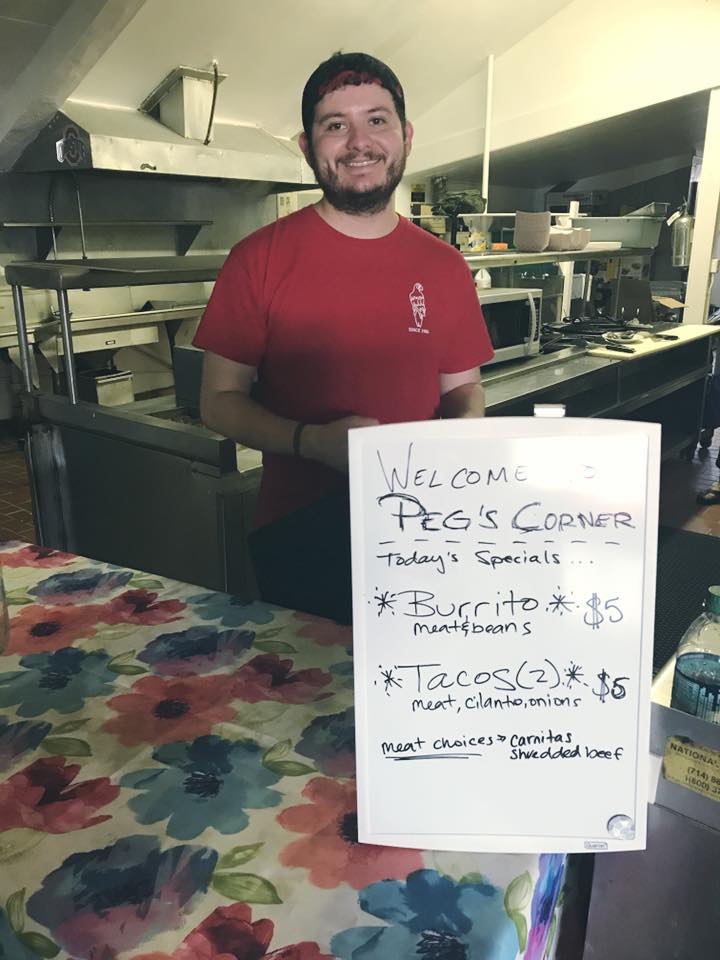 SINCE 1986
WELCOME
PEG'S CORNER
Today's Specials ...
*Burrito* $5
meat & beans
*Tacos(2)* $5
meat, cilantro, onions
meat choices → carnitas
shredded beef
Quartet
NATIONA
(714) 8